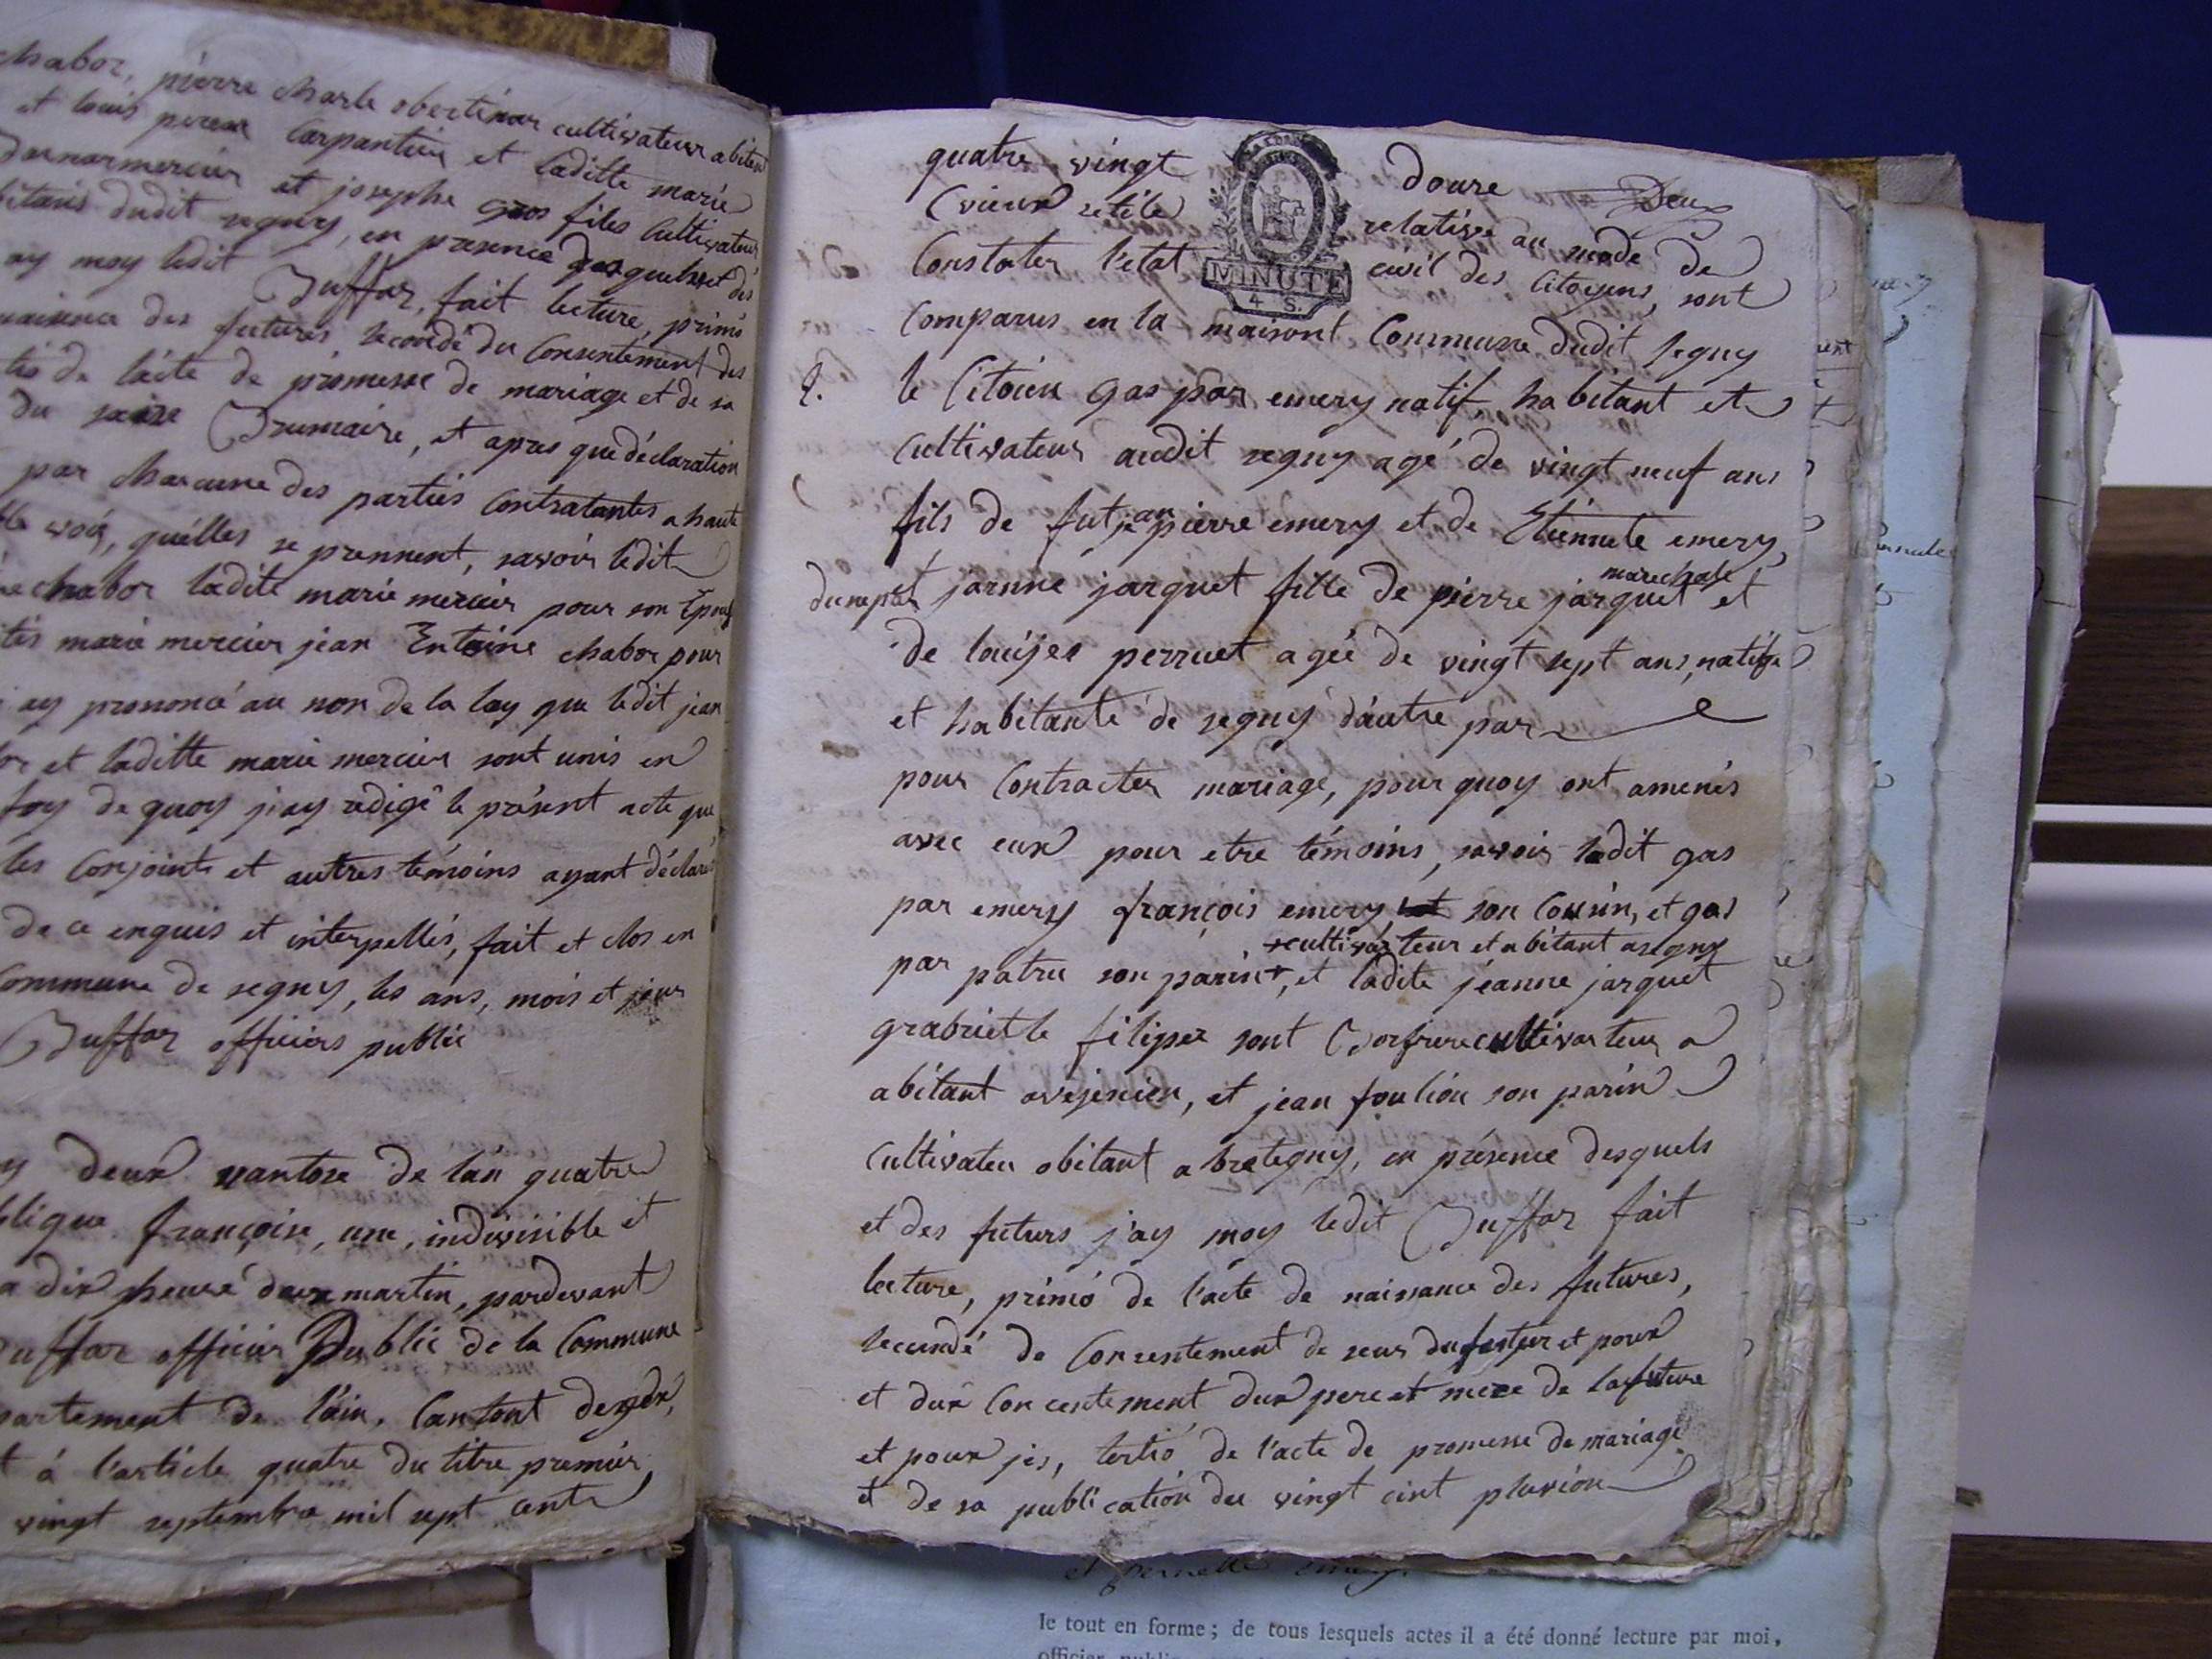 chabor, pierre charle obertinor cultivateur abitant
et louis pereu Carpantier et laditte marie
mercier et josephe gros files cultivateur
bitans dudit segny, en presence desquels et des
ay moy ledit Duffar, fait lecture, primó
naissance des futures secondé du Consentement des
tis de l'acte de promesse de mariage et de sa
du seize Brumaire, et apres que déclaration
par chacune des parties Contratantes a haute
voix, qu'elles se prennent, savoir ledit
chabor ladite marie mercier pour son Epouse
marie mercier jean Entoine chabor pour
ay prononcé au nom de la loy que ledit jean
et laditte marie mercier sont unis en
foy de quoy j'ay redigé le présent acte que
les Conjoints et autres témoins ayant déclaré
de ce enquis et interpellés, fait et clos en
Commune de segny, les ans, mois et jour
Duffar officiers publié
deux vantose de l'an quatre
blique françoise, une, indivisible et
a dix heure deux martin, pardevant
uffar officier Public de la Commune
partement de l'ain, Cantont degex,
t á l'article quatre du titre premier
vingt septembre mil sept cent
quatre vingt douze Deux
relative au mode de
Constater l'etat civil des Citoyens, sont
MINUTE
4 S.
Comparus en la maisont Commune dudit segny
2. le Citoien gas par emery natif habitant et
Cultivateur audit segny agé de vingt neuf ans
fils de fut jean pierre emery et de Etiennete emery,
marechale
dunepar et jeanne jarquet fille de pierre jarquet et
de loujse perruet agée de vingt sept ans, natife
et habitante de segny d'autre par
pour Contracter mariage, pour quoy ont amenés
avec eux pour etre témoins, savoir ledit gas
par emery françois emery son Cousin, et gas
+cultivateur et abitant asegny
par patru son parin+, et ladite jeanne jarquet
grabrielle filipee sont Borfrere cultivateur a
abitant avejencien, et jean foulion son parin
Cultivateu obitant a bretegny, en présence desquels
et des futurs j'ay moy ledit Duffar fait
lecture, primó de l'acte de naissance des futures,
secundé de Consentement de seus du futeur et pour
et dux Concentement dux pere et mere de la future
et pour jes, tertió de l'acte de promesse de mariage
et de sa publication du vingt cint pluvion
et pernette emery.
le tout en forme ; de tous lesquels actes il a été donné lecture par moi,
officier public